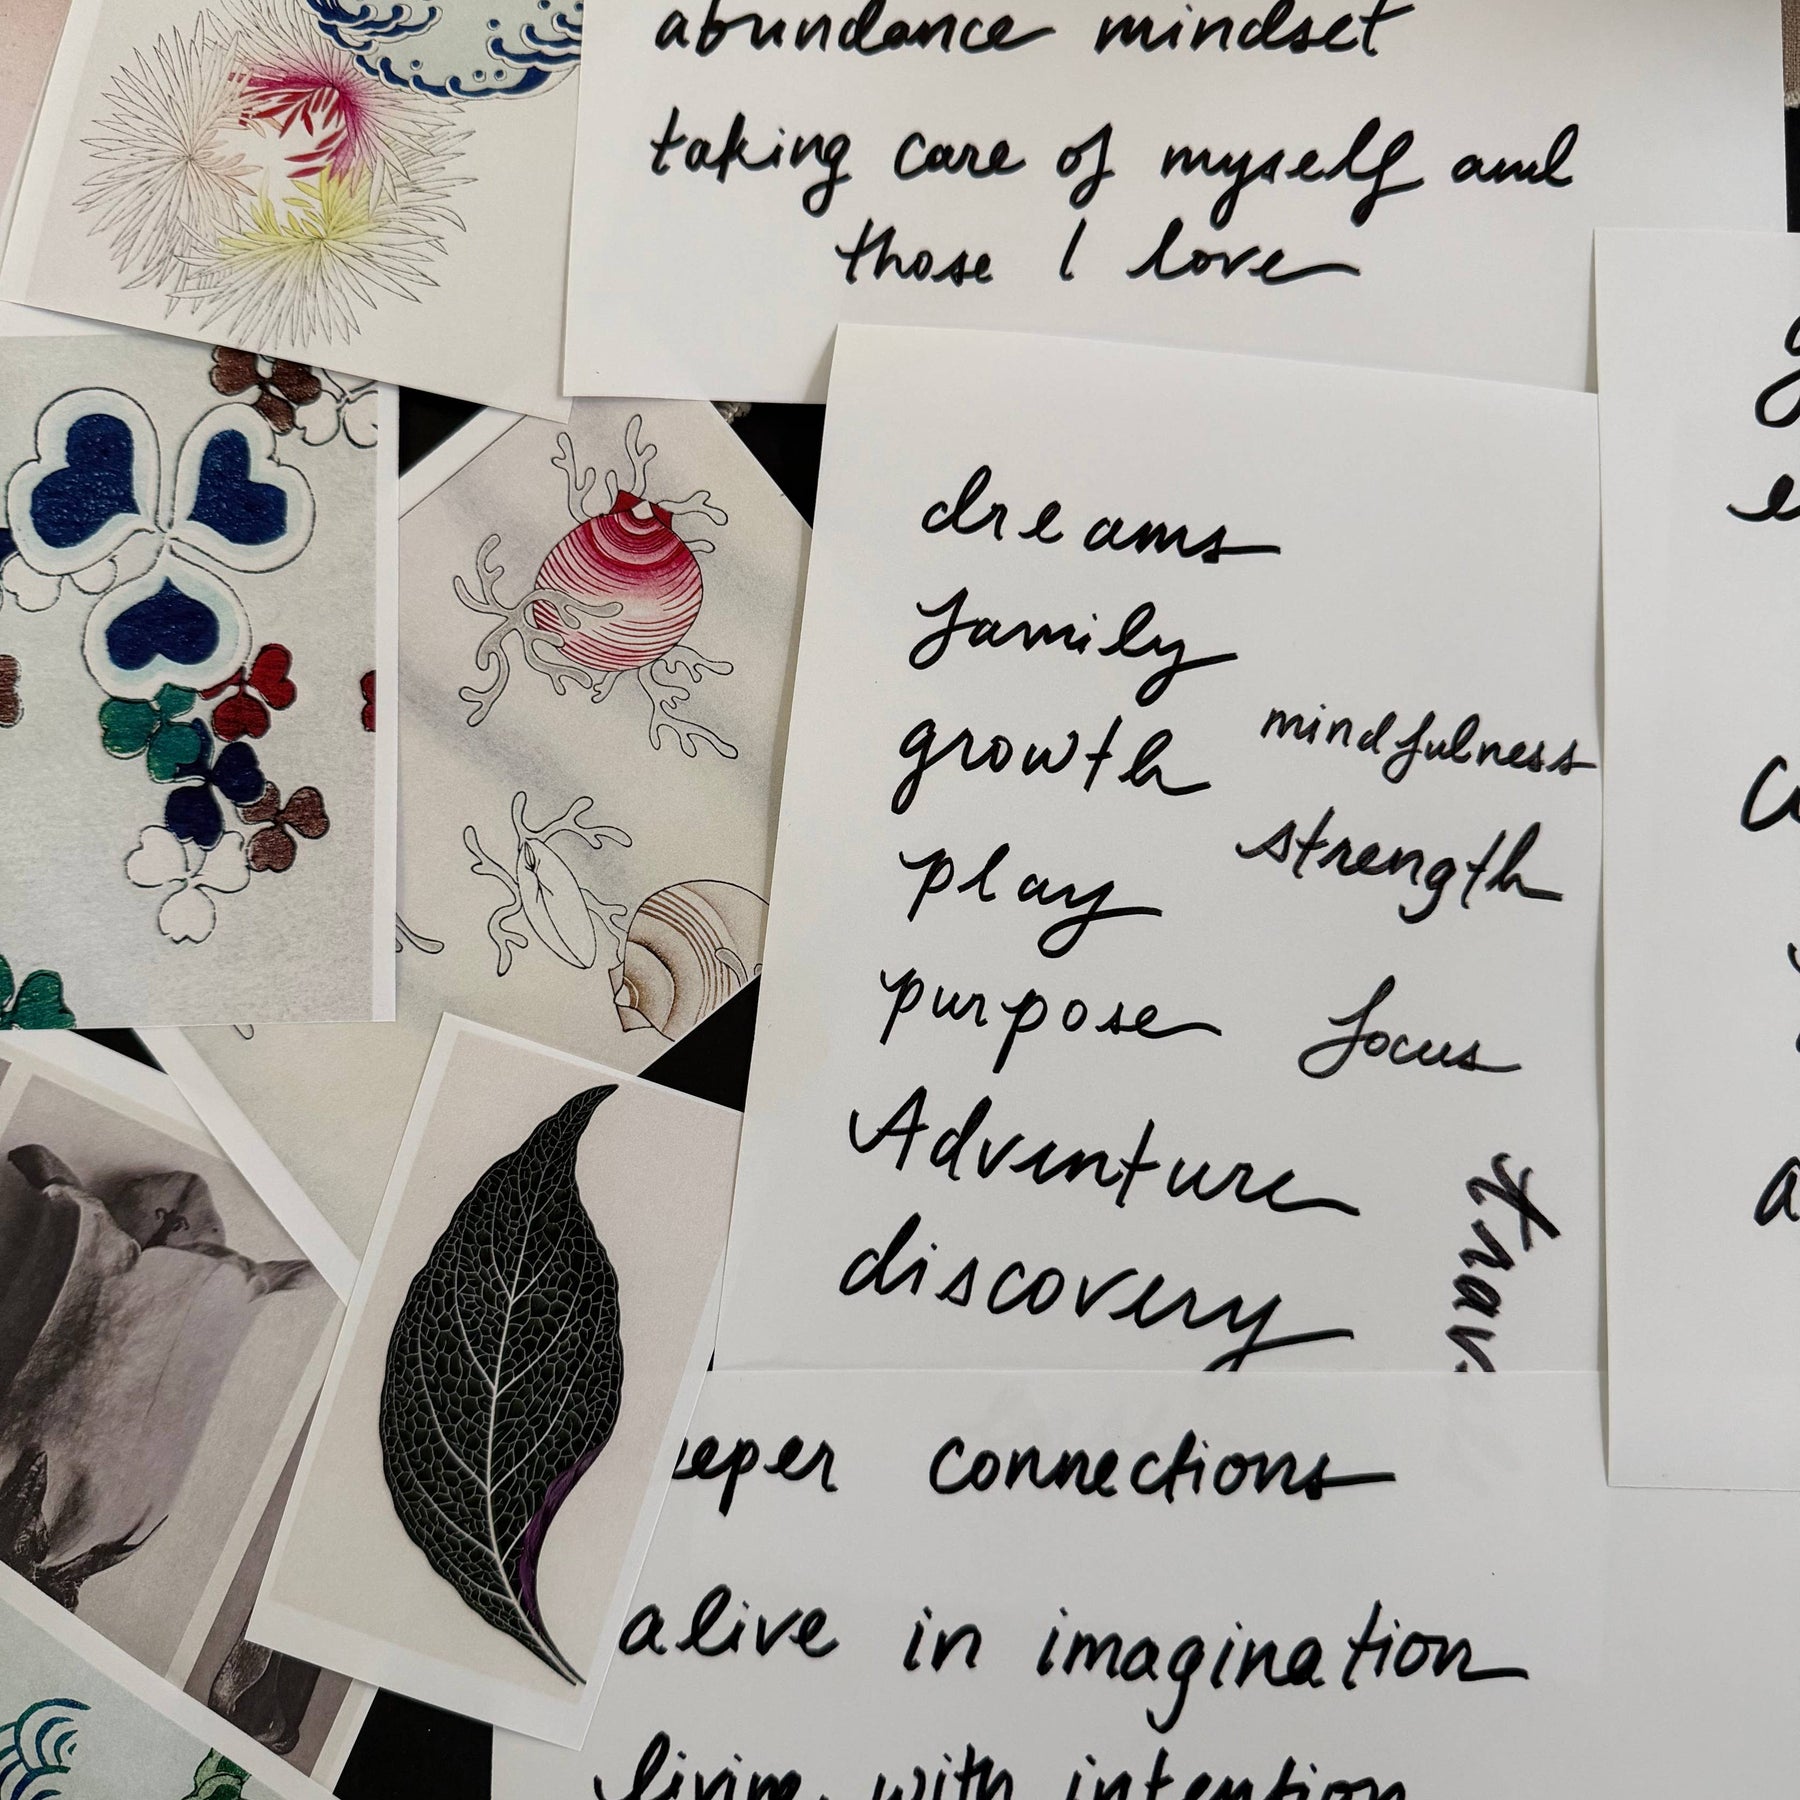 abundance mindset
taking care of myself and
those I love
dreams
family
growth
mindfulness
play
strength
purpose
focus
Adventure
discovery
connections
alive in imagination
living with intention